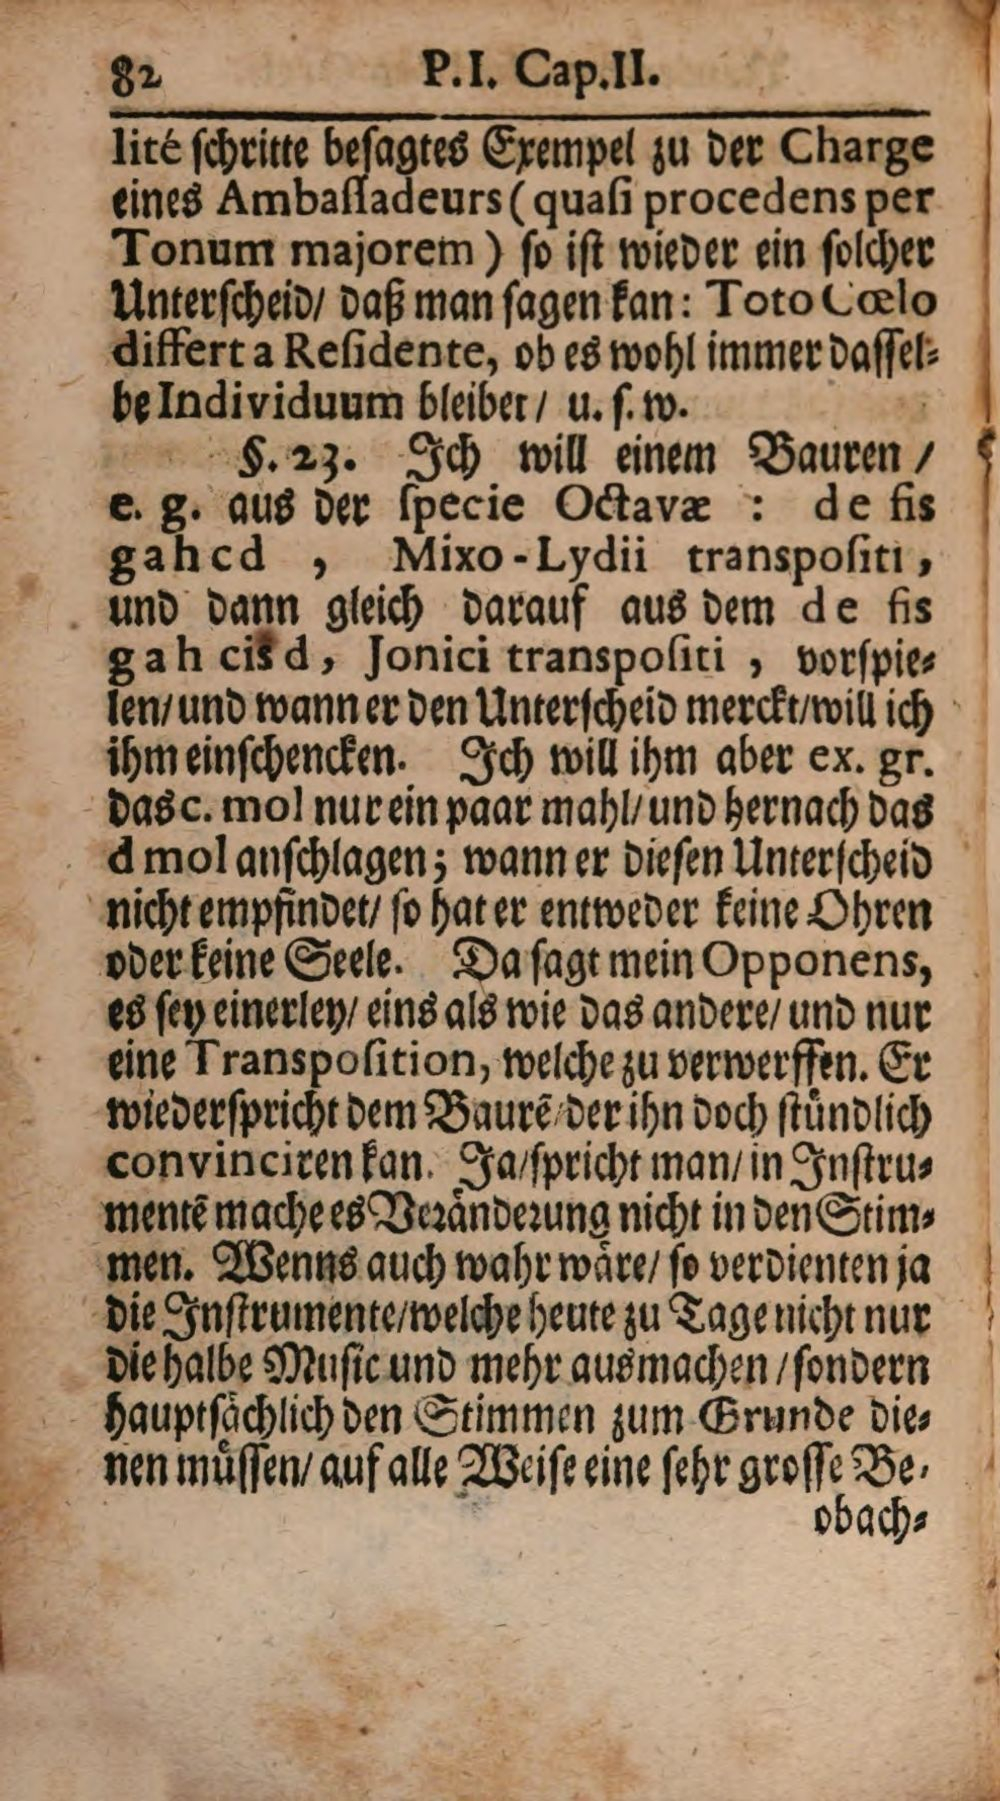 82 P.I. Cap.II.
lité ſchritte beſagtes Exempel zu der Charge
eines Ambaſſadeurs (quaſi procedens per
Tonum majorem) ſo iſt wieder ein ſolcher
Unterſcheid/ daß man ſagen kan: Toto Cœlo
differt a Reſidente, ob es wohl immer daſſel⸗
be Individuum bleibet/ u. ſ. w.
§. 23. Ich will einem Bauren /
e. g. aus der ſpecie Octavæ : d e fis
g a h c d , Mixo-Lydii transpoſiti,
und dann gleich darauf aus dem d e fis
g a h cis d, Jonici transpoſiti , vorſpie⸗
len/ und wann er den Unterſcheid merckt/ will ich
ihm einſchencken. Ich will ihm aber ex. gr.
das c. mol nur ein paar mahl/ und hernach das
d mol anſchlagen; wann er dieſen Unterſcheid
nicht empfindet/ ſo hat er entweder keine Ohren
oder keine Seele. Da ſagt mein Opponens,
es ſey einerley/ eins als wie das andere/ und nur
eine Transpoſition, welche zu verwerffen. Er
wiederſpricht dem Baurē/ der ihn doch ſtündlich
convinciren kan. Ja/ ſpricht man/ in Inſtru⸗
mentē mache es Veränderung nicht in den Stim⸗
men. Wenns auch wahr wäre/ ſo verdienten ja
die Inſtrumente/ welche heute zu Tage nicht nur
die halbe Muſic und mehr ausmachen / ſondern
hauptſächlich den Stimmen zum Grunde die⸗
nen müſſen/ auf alle Weiſe eine ſehr groſſe Be⸗
obach⸗